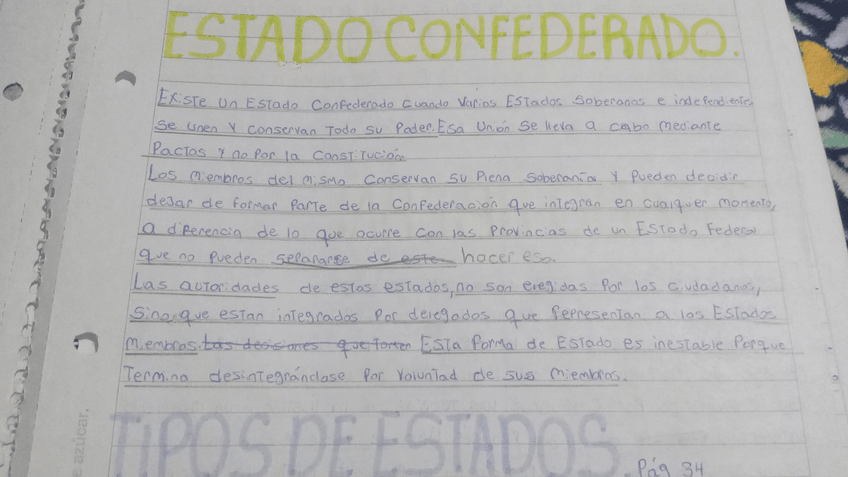 ESTADO CONFEDERADO.
Existe un Estado Confederado cuando varios Estados soberanos e independientes
se unen y conservan todo su Poder. Esa Unión se lleva a cabo mediante
Pactos y no por la Constitución
Los miembros del mismo conservan su plena soberanía y pueden decidir
dejar de formar parte de la Confederación que integran en cualquer momento,
a diferencia de lo que ocurre con las Provincias de un Estado Federal
que no pueden separarse de este hacer eso.
Las autoridades de estos estados, no son elegidas por los ciudadanos,
sino que estan integrados por delegados que representan a los Estados
miembros. Las decisiones que tomen Esta forma de Estado es inestable porque
termina desintegrándose por voluntad de sus miembros.
TIPOS DE ESTADOS
Pág 34
e azúcar.